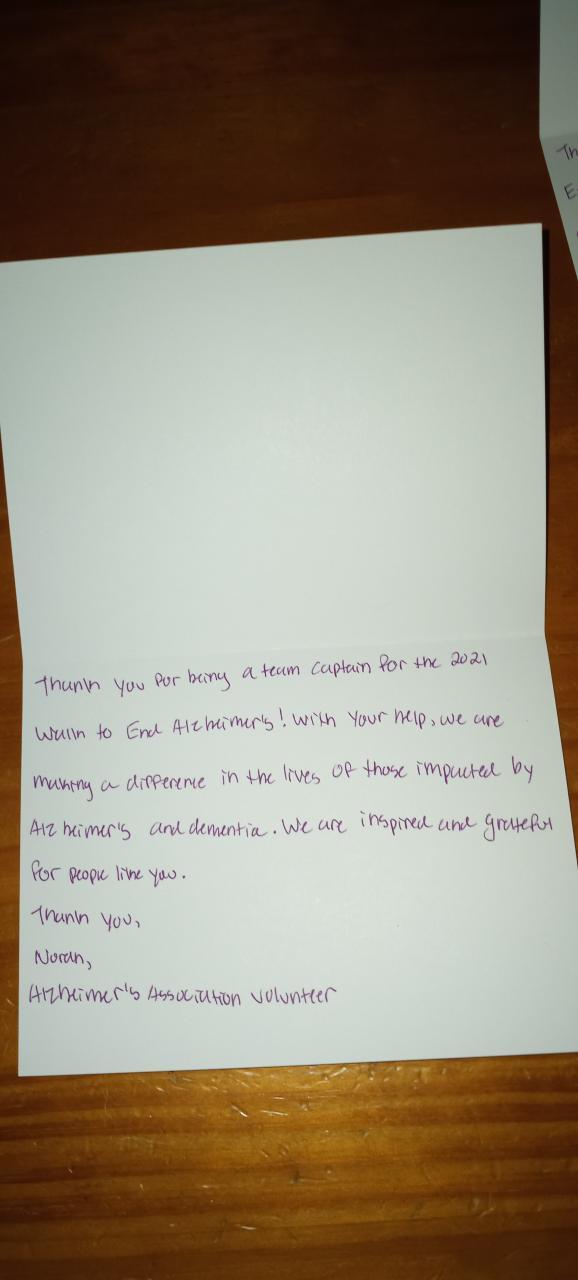 Th
E
Thank you for being a team captain for the 2021
Walk to End Alzheimer's! With your help, we are
making a difference in the lives of those impacted by
Alzheimer's and dementia. We are inspired and grateful
for people like you.
Thank you,
Norah,
Alzheimer's Association volunteer